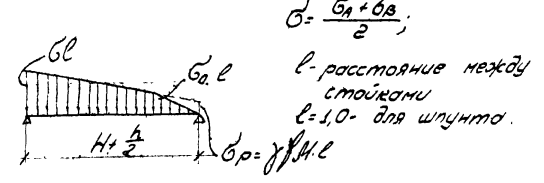 σ = (σA + σB) / 2 ;
σl
σa. l
l - расстояние между
стойками
l = 1,0 - для шпунта.
H + h/2
σp = γ f M · l